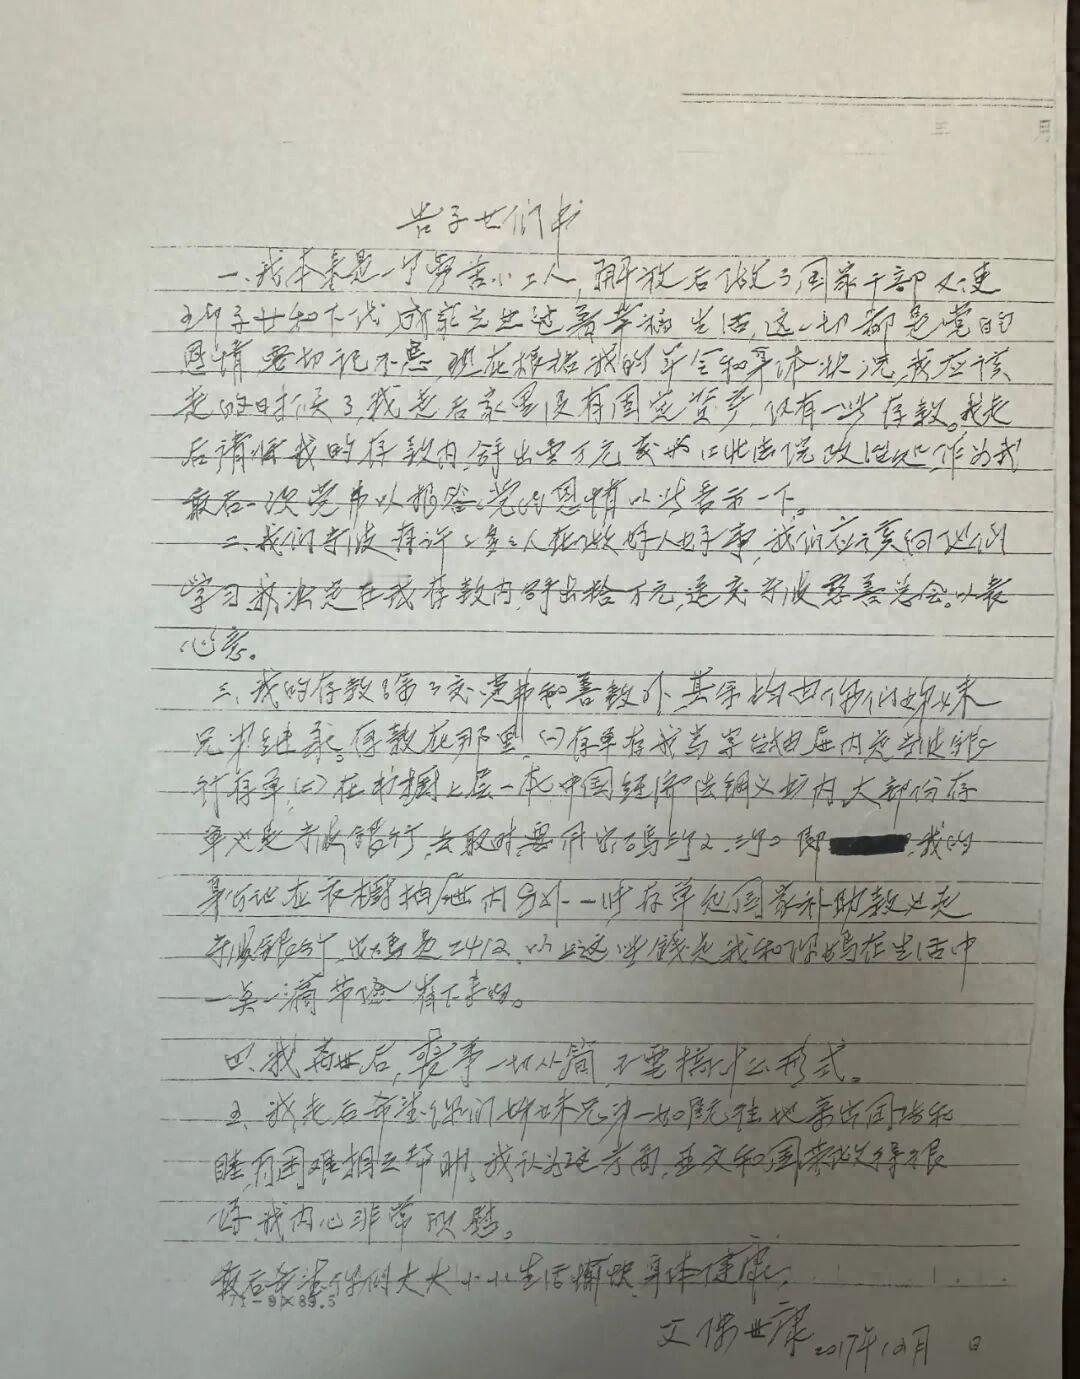 告子女们书
一、我本来是一个劳苦小工人，解放后做了国家干部及使
子女和下代成家立业过着幸福生活，这一切都是党的
恩情要切记不忘，现在根据我的年令和身体状况，我应该
走的时候了，我走后家里没有固定资产，仅有一些存款。我走
后请你我的存款内，拿出壹万元交 江北法院政治处，作为我
最后一次党费以报答党的恩情以此告示一下。
二、我们宁波有许许多多人在做好人好事，我们应该向他们
学习我决定在我存款内，拿出拾万元，送交宁波慈善总会。以表
心意。
三、我的存款除了交党费和善款外，其余均由你们姐妹
兄弟继承。存款在那里，(一)存单存我写字台抽屉内是宁波银
行存单，(二)在 橱上层一本中国经济法讲义书内，大部份存
单也是宁波银行，去取时要 密码 即 我的
身份证在衣橱抽屉内另外一些存单是国家补助款也是
宁波银行，密码是2412，以上这些钱是我和你妈在生活中
一点一滴节俭省下来的。
四、我离世后，丧事一切从简，不要搞什么形式。
五、我走后希望你们姐妹兄弟一如既往地亲密团结和
睦，有困难相互帮助，我认为这方面， 和国 做得很
好，我内心非常欣慰。
最后希望你们大大小小生活愉快，身体健康。
71-9)×89.5
父 2017年12月 日